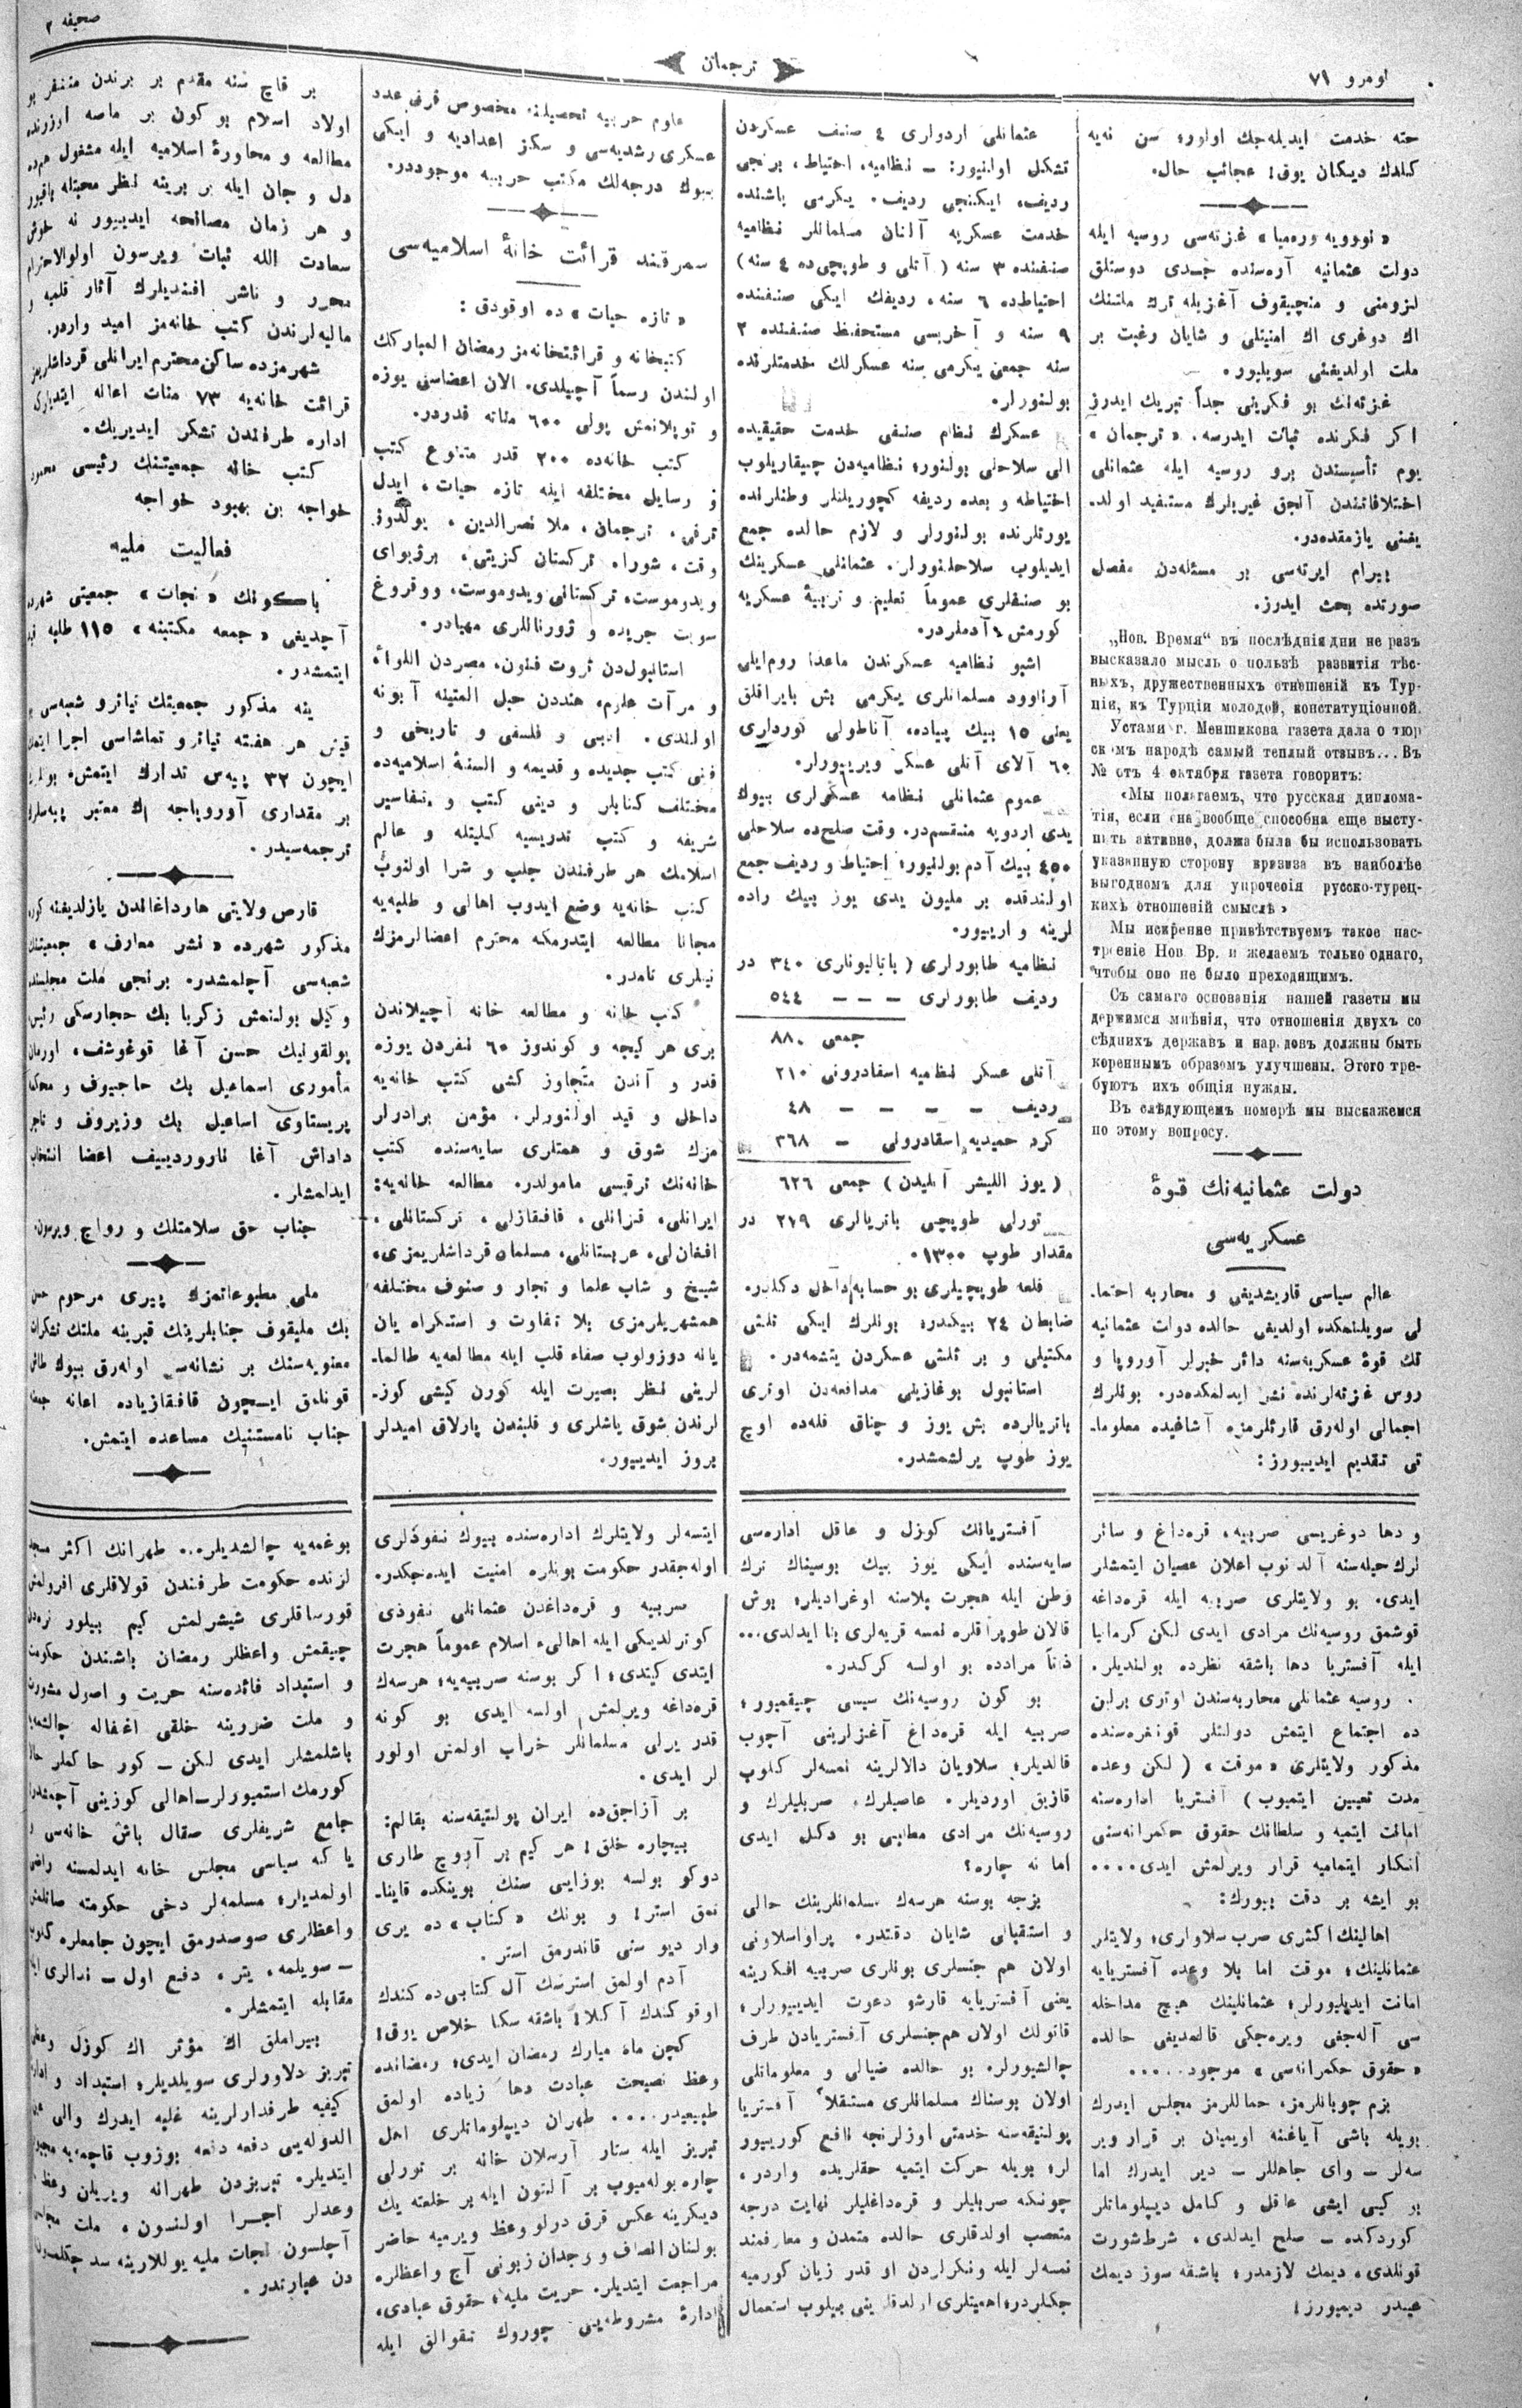 صحیفه ٢
ترجمان
نومرو ٧١
حته خدمت ایدیله‌جك اولور؛ سن نه‌یه
كلدك دیكان یوق! عجائب حال.
« نوویه وره‌میا » غزته‌سی روسیه ایله
دولت عثمانیه آره‌سنده جدی دوستلق
لزومنی و منچیقوف آغزیله ترك ملتنك
اك دوغری اك امنیتلی و شایان رغبت بر
ملت اولدیغنی سویلیور.
غزته‌نك بو فكرینی جداً تبریك ایدرز
اكر فكرنده ثبات ایدرسه. « ترجمان »
یوم تأسیسندن برو روسیه ایله عثمانلی
اختلافاتندن آلجق غیریلرك مستفید اولد-
یغنی یازمقده‌در.
بیرام ایرته‌سی بر مسئله‌دن مفصل
صورتده بحث ایدرز.
„Нов. Время“ въ послѣднія дни не разъ
высказало мысль о пользѣ развитія тѣс-
ныхъ, дружественныхъ отношеній къ Тур-
ціи, къ Турціи молодой, конституціонной.
Устами г. Меншикова газета дала о тюр
скомъ народѣ самый теплый отзывъ... Въ
№ отъ 4 октября газета говоритъ:
«Мы полагаемъ, что русская диплома-
тія, если она вообще способна еще высту-
пить активно, должа была бы использовать
указанную сторону кризиза въ наиболѣе
выгодномъ для упроченія русско-турец-
кихъ отношеній смыслѣ»
Мы искренне привѣтствуемъ такое нас-
троеніе Нов. Вр. и желаемъ только однаго,
чтобы оно не было преходящимъ.
Съ самаго основанія нашей газеты мы
держимся мнѣнія, что отношенія двухъ со
сѣднихъ державъ и народовъ должны быть
кореннымъ образомъ улучшены. Этого тре-
буютъ ихъ общія нужды.
Въ слѣдующемъ номерѣ мы выскажемся
по этому вопросу.
دولت عثمانیه‌نك قوۀ
عسكریه‌سی
عالم سیاسی قاریشدیغی و محاربه احتما-
لی سویلنمكده اولدیغی حالده دولت عثمانیه
نك قوۀ عسكریه‌سنه دائر خبرلر آوروپا و
روس غزته‌لرنده نشر ایدلمكده‌در. بونلرك
اجمالی اوله‌رق قارئلرمزه آشاغیده معلوما-
تی تقدیم ایدییورز:
عثمانلی اردولری ٤ صنف عسكردن
تشكل اولنیور: — نظامیه، احتیاط، برنجی
ردیف، ایكنجی ردیف. یكرمی یاشنده
خدمت عسكریه آلنان مسلمانلر نظامیه
صنفنده ٣ سنه ( آتلی و طوپچی‌ده ٤ سنه )
احتیاطده ٦ سنه، ردیفك ایكی صنفنده
٩ سنه و آخریسی مستحفظ صنفنده ٢
سنه جمعی یكرمی سنه عسكرلك خدمتلرنده
بولنورلر.
عسكرك نظام صنفی خدمت حقیقیده
الی سلاحلی بولنور؛ نظامیه‌دن چیقاریلوب
احتیاطه و بعده ردیفه كچوریلنلر وطنلرنده
یورتلرنده بولنورلر و لازم حالده جمع
ایدیلوب سلاحلنورلر. عثمانلی عسكرینك
بو صنفلری عموماً تعلیم و تربیۀ عسكریه
كورمش آدملردر.
اشبو نظامیه عسكرندن ماعدا روم‌ایلی
آرناوود مسلمانلری یكرمی بش بایراقلق
یعنی ١٥ بیك پیاده، آناطولی كوردلری
٦٠ آلای آتلی عسكر ویرییورلر.
عموم عثمانلی نظامه عسكرلری بیوك
یدی اردویه منقسم‌در. وقت صلح‌ده سلاحلی
٤٥٠ بیك آدم بولنیور؛ احتیاط و ردیف جمع
اولندقده بر ملیون یدی یوز بیك راده
لرینه واریپور.
نظامیه طابورلری ( باتالیونلری ٣٤٠ در
ردیف طابورلری — — — ٥٤٤
جمعی ٨٨٠
آتلی عسكر نظامیه اسقادرونی ٢١٠
ردیف — — — — ٤٨
كرد حمیدیه اسقادرونی — ٣٦٨
( یوز اللیشر آتلیدن ) جمعی ٦٢٦
تورلی طوپچی باتریالری ٢١٩ در
مقدار طوپ ١٣٠٠.
قلعه طوپچیلری بو حسابه داخل دكلدر.
ضابطان ٢٤ بیكدر؛ بونلرك ایكی ثلثی
مكتبلی و بر ثلثی عسكردن یتشمه‌در.
استانبول بوغازینی مدافعه‌دن اوتری
باتریالرده بش یوز و چناق قلعه‌ده اوچ
یوز طوپ یرلشمشدر.
علوم حربیه تحصیلنه مخصوص قرقی عدد
عسكری رشدیه‌سی و سكز اعدادیه و ایكی
بیوك درجه‌لك مكتب حربیه موجوددر.
سمرقند قرائت خانۀ اسلامیه‌سی
« تازه حیات » ده اوقودق :
كتبخانه و قرائتخانه‌مز رمضان المباركك
اولندن رسماً آچیلدی. الان اعضاسی یوزه
و توپلانمش پولی ٦٠٠ مناته قدردر.
كتب خانه‌ده ٢٠٠ قدر متنوع كتب
و رسایل مختلفه ایله تازه حیات، ایدل
ترقی، ترجمان، ملا نصرالدین، یولدوز
وقت، شورا، تركستان كزیتی، برژیوای
ویدوموست، تركستانی ویدوموست، ووقروغ
سویت جریده و ژورناللری مهیادر.
استانبول‌دن ثروت فنون، مصردن اللواء
و مرآت علوم، هنددن حبل المتینه آبونه
اولندی. ادبی و فلسفی و تاریخی و
فنی كتب جدیده و قدیمه و السنۀ اسلامیه‌ده
مختلف كتابلر و دینی كتب و تفاسیر
شریفه و كتب تدریسیه كلیتله و عالم
اسلامك هر طرفندن جلب و شرا اولنوب
كتب خانه‌یه وضع ایدوب اهالی و طلبه‌یه
مجانا مطالعه ایتدرمكه محترم اعضالرمزك
نیتلری تامدر.
كتب خانه و مطالعه خانه آچیلاندن
بری هر كیجه و كوندوز ٦٠ نفردن یوزه
قدر و آندن متجاوز كشی كتب خانه‌یه
داخل و قید اولنورلر. مؤمن برادرلر
مزك شوق و همتلری سایه‌سنده كتب
خانه‌نك ترقیسی مامولدر. مطالعه خانه‌یه:
ایرانلی، قزانلی، قافقازلی، تركستانلی،
افغان‌لی، عربستانلی، مسلمان قرداشلریمزی،
شیخ و شاب علما و تجار و صنوف مختلفه
همشهریلرمزی بلا تفاوت و استكراه یان
یانه دوزولوب صفاء قلب ایله مطالعه‌یه طالما-
لرینی نظر بصیرت ایله كورن كیشی كوز-
لرندن شوق یاشلری و قلبندن پارلاق امیدلر
بروز ایدییور.
بر قاچ سنه مقدم بر برندن متنفر بو
اولاد اسلام بو كون بر ماصه اوزرنده
مطالعه و محاورۀ اسلامیه ایله مشغول
دل و جان ایله بر برینه نظر محبتله باقیور
و هر زمان مصالحه ایدییور نه خوش
سعادت الله ثبات ویرسون اولوالاحترام
محرر و ناشر افندیلرك آثار قلمیه و
مالیه‌لرندن كتب خانه‌مز امید واردر.
شهرمزده ساكن محترم ایرانلی قرداشلریمز
قرائت خانه‌یه ٧٣ منات اعانه ایتدیلر
اداره طرفندن تشكر ایدیریك.
كتب خانه جمعیتنك رئیسی محمود
خواجه بن بهبود خواجه
فعالیت ملیه
باكونك « نجات » جمعیتی شهرده
آچدیغی « جمعه مكتبنه » ١١٥ طلبه قید
ایتمشدر.
ینه مذكور جمعیتك تیاترو شعبه‌سی
قیش هر هفته تیاترو تماشاسی اجرا ایتمك
ایچون ٣٢ پیه‌س تدارك ایتمش، بونلرك
بر مقداری آوروپاجه اك معتبر پیه‌سلرك
ترجمه‌سیدر.
قارص ولایتی هارداغاندن یازلدیغنه كوره
مذكور شهرده « نشر معارف » جمعیتنك
شعبه‌سی آچلمشدر. برنجی ملت مجلسنده
وكیل بولنمش زكریا بك حجارسكی رئیس
پولقونیك حسن آغا قوغوشف، اورمان
مأموری اسماعیل بك حاجییوف و محكمه
پریستاوی اسماعیل بك وزیروف و تاجر
داداش آغا نارودییف اعضا انتخاب
ایدلمشلر.
جناب حق سلامتلك و رواج ویرسون.
ملی مطبوعاتمزك پیری مرحوم حسن
بك ملیقوف جنابلرینك قبرینه ملتك تشكرات
معنویه‌سنك بر نشانه‌سی اوله‌رق بیوك طاش
قونلمق ایچون قافقازیاده اعانه جمعنه
جناب نامستنیك مساعده ایتمش.
و دها دوغریسی صربیه، قره‌داغ و سائر
لرك حیله‌سنه آلدنوب اعلان عصیان ایتمشلر
ایدی. بو ولایتلری صربیه ایله قره‌داغه
قوشمق روسیه‌نك مرادی ایدی لكن كرمانیا
ایله آفستریا دها باشقه نظرده بولندیلر.
روسیه عثمانلی محاربه‌سندن اوتری برلین
ده اجتماع ایتمش دولتلر قونفره‌سنده
مذكور ولایتلری « موقت » ( لكن وعده
مدت تعیین ایتمیوب ) آفستریا اداره‌سنه
امانت ایتمیه و سلطانك حقوق حكمرانه‌سنی
انكار ایتمامیه قرار ویرلمش ایدی....
بو ایشه بر دقت بیورك:
اهالینك اكثری صرب سلاولری؛ ولایتلر
عثمانلینك؛ موقت اما بلا وعده آفستریایه
امانت ایدیلیورلر؛ عثمانلینك هیچ مداخله
سی آله‌جغی ویره‌جكی قالمدیغی حالده
« حقوق حكمرانه‌سی » موجود......
بزم چوبانلرمز، حماللرمز مجلس ایدرك
بویله باشی آیاغنه اویمیان بر قرار ویر
سه‌لر — وای جاهللر — دیر ایدرك اما
بر كیی ایشی عاقل و كامل دیپلوماتلر
كوردكده — صلح ایدلدی، شرط‌شورت
قونلدی، دیمك لازمدر؛ باشقه سوز دیمك
عیبدر دییورز!
آفستریانك كوزل و عاقل اداره‌سی
سایه‌سنده ایكی یوز بیك بوسیناك ترك
وطن ایله هجرت بلاسنه اوغرادیلر؛ بوش
قالان طوپراقلره نمسه قریه‌لری بنا ایدلدی...
ذاتاً مرادده بو اولسه كركدر.
بو كون روسیه‌نك سیسی چیقمیور؛
صربیه ایله قره‌داغ آغزلرینی آچوب
قالدیلر؛ سلاویان دالالرینه نمسه‌لر كلوپ
قازیق اوردیلر. عاصیلرك، صربلیلرك و
روسیه‌نك مرادی مطلبی بو دكل ایدی
اما نه چاره؟
بزجه بوسنه هرسك مسلمانلرینك حالی
و استقبالی شایان دقتدر. پراواسلاونی
اولان هم جنسلری بونلری صربیه افكارینه
یعنی آفستریایه قارشو دعوت ایدییورلر؛
قاتولك اولان هم‌جنسلری آفستریادن طرف
چالشیورلر. بو حالده ضیالی و معلوماتلی
اولان بوسناك مسلمانلری مستقلاً آفستریا
پولتیقه‌سنه خدمتی اوزلرنجه نافع كورییور
لر؛ بویله حركت ایتمیه حقلریده واردر،
چونكه صربلیلر و قره‌داغلیلر نهایت درجه
متعصب اولدقلری حالده متمدن و معارفمند
نمسه‌لر ایله ونكرلردن او قدر زیان كورمیه
جكلردر؛ اهمیتلری اولدقلرینی بیلوب استعمال
ایتسه‌لر ولایتلرك اداره‌سنده بیوك نفوذلری
اوله‌جقدر حكومت بونلره امنیت ایده‌جكدر.
صربیه و قره‌داغدن عثمانلی نفوذی
كوترلدیكی ایله اهالیء اسلام عموماً هجرت
ایتدی كیتدی؛ اكر بوسنه صربییه‌یه، هرسك
قره‌داغه ویرلمش اولسه ایدی بو كونه
قدر یرلی مسلمانلر خراب اولمش اولور
لر ایدی.
بر آزاجق‌ده ایران پولتیقه‌سنه بقالم:
بیچاره خلق! هر كیم بر آووچ طاری
دوكو بولسه بوزایسی سنك بوینكده قاینا-
تمق استر! و بونك « كتاب » ده یری
وار دیو سنی قاندرمق استر.
آدم اولمق استرسك آل كتابی‌ده كندك
اوقو كندك آكلا! باشقه سكا خلاص یوق!
كچن ماه مبارك رمضان ایدی؛ رمضانده
وعظ نصیحت عبادت دها زیاده اولمق
طبیعیدر.... طهران دیپلوماتلری اهل
تبریز ایله ستار آرسلان خانه بر تورلی
چاره بوله‌میوب بر آلتون ایله بر خلعته یك
دیكرینه عكس قرق درلو وعظ ویرمیه حاضر
بولنان انصاف و وجدان زبونی آچ واعظلره
مراجعت ایتدیلر. حریت ملیه؛ حقوق عبادی،
ادارۀ مشروطه‌یی چوروك تقوالق ایله
بوغمه‌یه چالشدیلر... طهرانك اكثر مسجد
لرنده حكومت طرفندن قولاقلری افرولمش
قورساقلری شیشرلمش كیم بیلور نره‌دن
چیقمش واعظلر رمضان باشندن حكومت
و استبداد فائده‌سنه حریت و اصول مشورت
و ملت ضررینه خلقی اغفاله چالشمیه
باشلمشلر ایدی لكن — كور حاكملر حالا
كورمك استمیورلر — اهالی كوزینی آچمشدر!
جامع شریفلری صقال باش خانه‌سی و
یا كه سیاسی مجلس خانه ایدلمسنه راضی
اولمدیلر؛ مسلمه‌لر دخی حكومته صاتلمش
واعظلری صوصدرمق ایچون جامعلره كلوب
— سویلمه، یتر، دفع اول — ندالری ایله
مقابله ایتمشلر.
بیراملق اك مؤثر اك كوزل وعظی
تبریز دلاورلری سویلدیلر؛ استبداد و اداره
كیفیه طرفدارلرینه غلبه ایدرك والی عین
الدوله‌یی دفعه دفعه بوزوب قاچمه‌یه مجبور
ایتدیلر. تبریزدن طهرانه ویریلن وعظ
وعدلر اجرا اولنسون، ملت مجلسی
آچلسون نجات ملیه یوللارینه سد چكلمسون
دن عبارتدر.